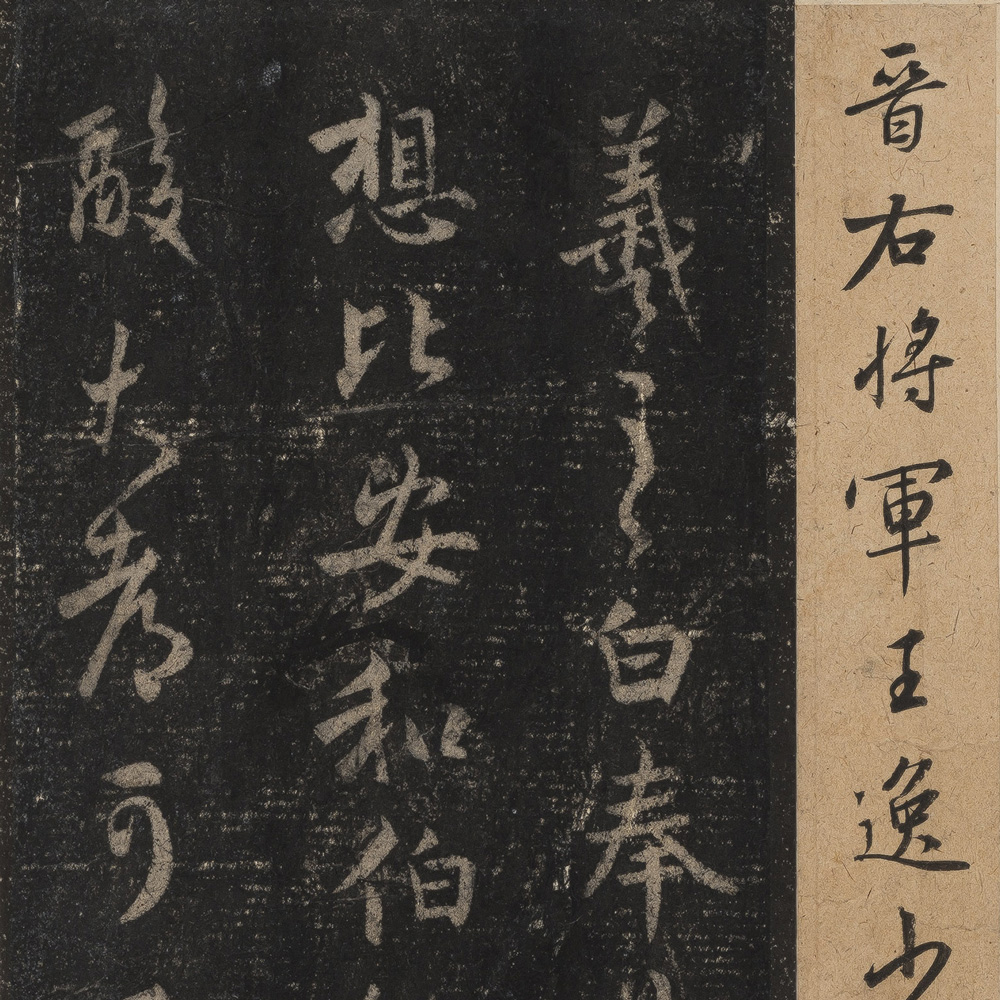 晉右將軍王逸少
羲之白奉
想比安和伯
酸大都可